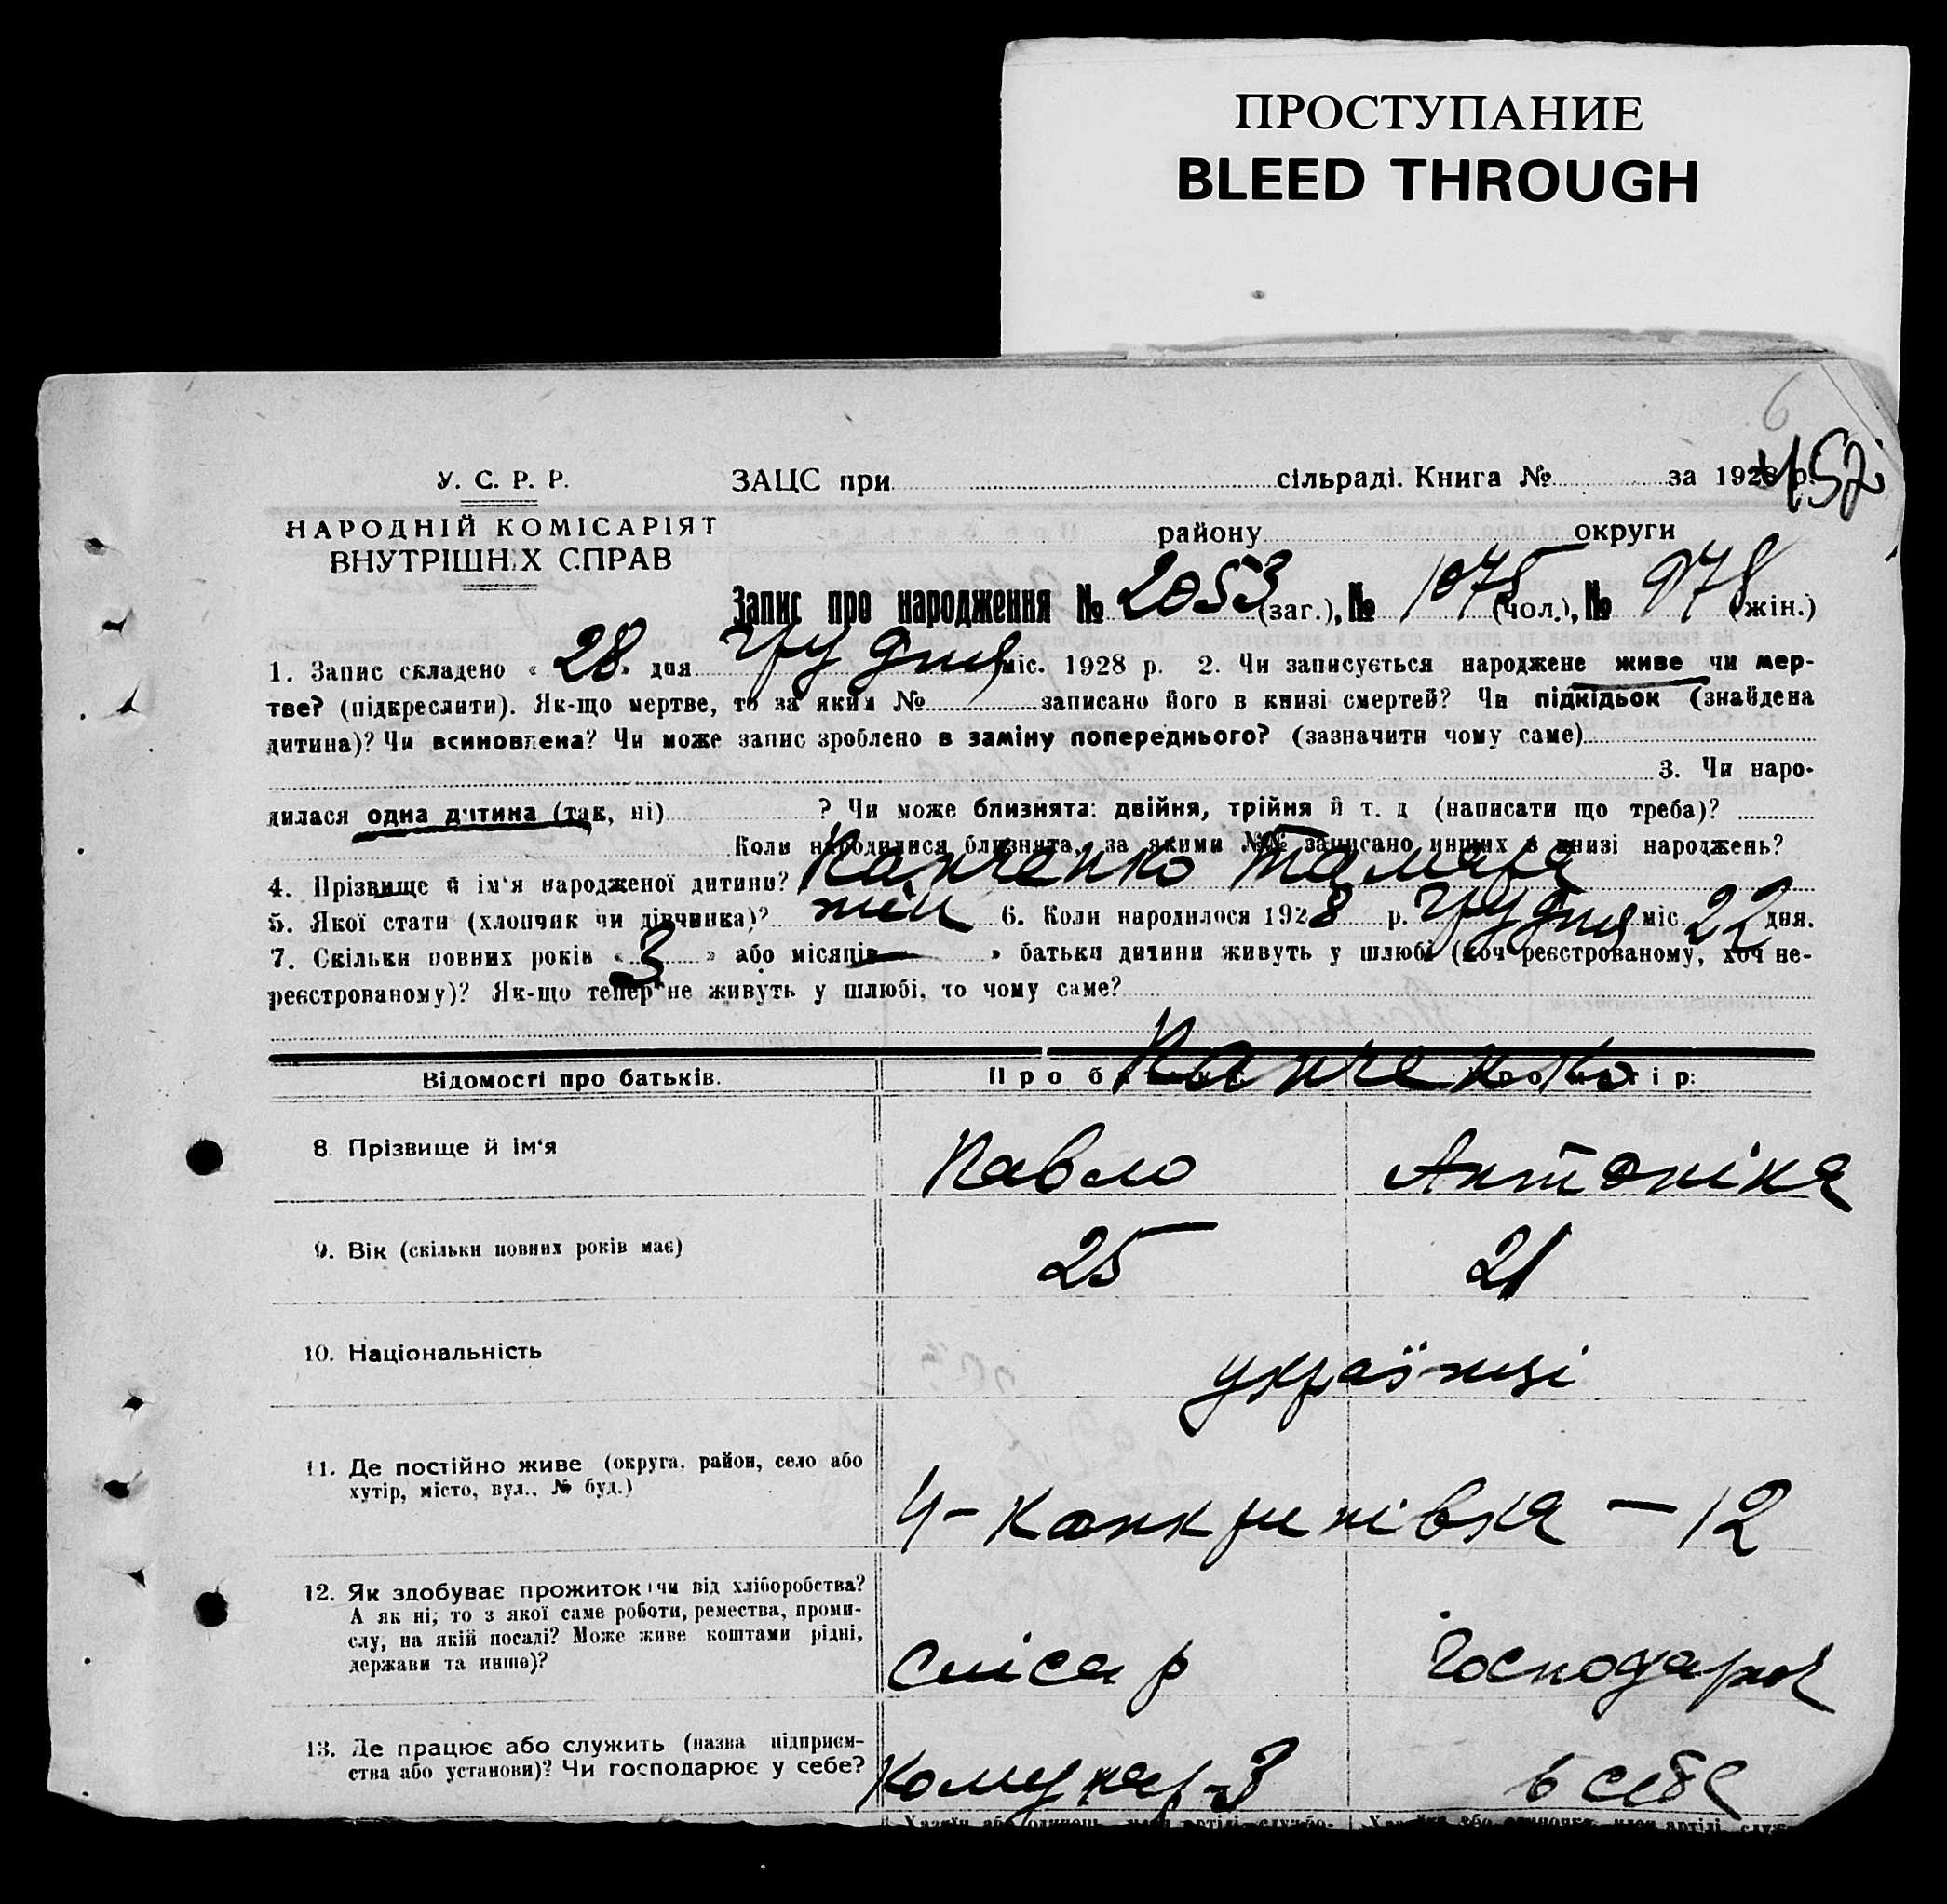 ПРОСТУПАНИЕ
BLEED THROUGH
6
452
У. С. Р. Р.
НАРОДНІЙ КОМІСАРІЯТ
ВНУТРІШНІХ СПРАВ
ЗАЦС при сільраді. Книга № за 1928 р.
району округи
Запис про народження № 2053 (заг.), № 1075 (чол.), № 978 (жін.)
1. Запис складено « 28 » дня грудня міс. 1928 р. 2. Чи записується народжене живе чи мер-
тве? (підкреслити). Як-що мертве, то за яким № записано його в книзі смертей? Чи підкідьок (знайдена
дитина)? Чи всиновлена? Чи може запис зроблено в заміну попереднього? (зазначити чому саме)
3. Чи наро-
дилася одна дитина (так, ні) ? Чи може близнята: двійня, трійня й т. д (написати що треба)?
Коли народилися близнята, за якими №№ записано инших в книзі народжень?
4. Прізвище й ім'я народженої дитини? Панченко Тамара
5. Якої стати (хлопчик чи дівчинка)? жін 6. Коли народилося 1928 р. грудня міс. 22 дня.
7. Скільки повних років « 3 » або місяців — » батьки дитини живуть у шлюбі (хоч реєстрованому, хоч не-
реєстрованому)? Як-що тепер не живуть у шлюбі, то чому саме?
Панченко
Відомості про батьків. Про батька: Про матір:
8. Прізвище й ім'я Павло Антоніна
9. Вік (скільки повних років має) 25 21
10. Національність українці
11. Де постійно живе (округа, район, село або
хутір, місто, вул., № буд.) Ч-Канкринівка — 12
12. Як здобуває прожиток: чи від хліборобства?
А як ні; то з якої саме роботи, ремества, проми-
слу, на якій посаді? Може живе коштами рідні,
держави та инше)? Слісар Господарює
13. Де працює або служить (назва підприєм-
ства або установи)? Чи господарює у себе? Комунар-З в себе
Хазяїн або одинець, член артілі, службо-